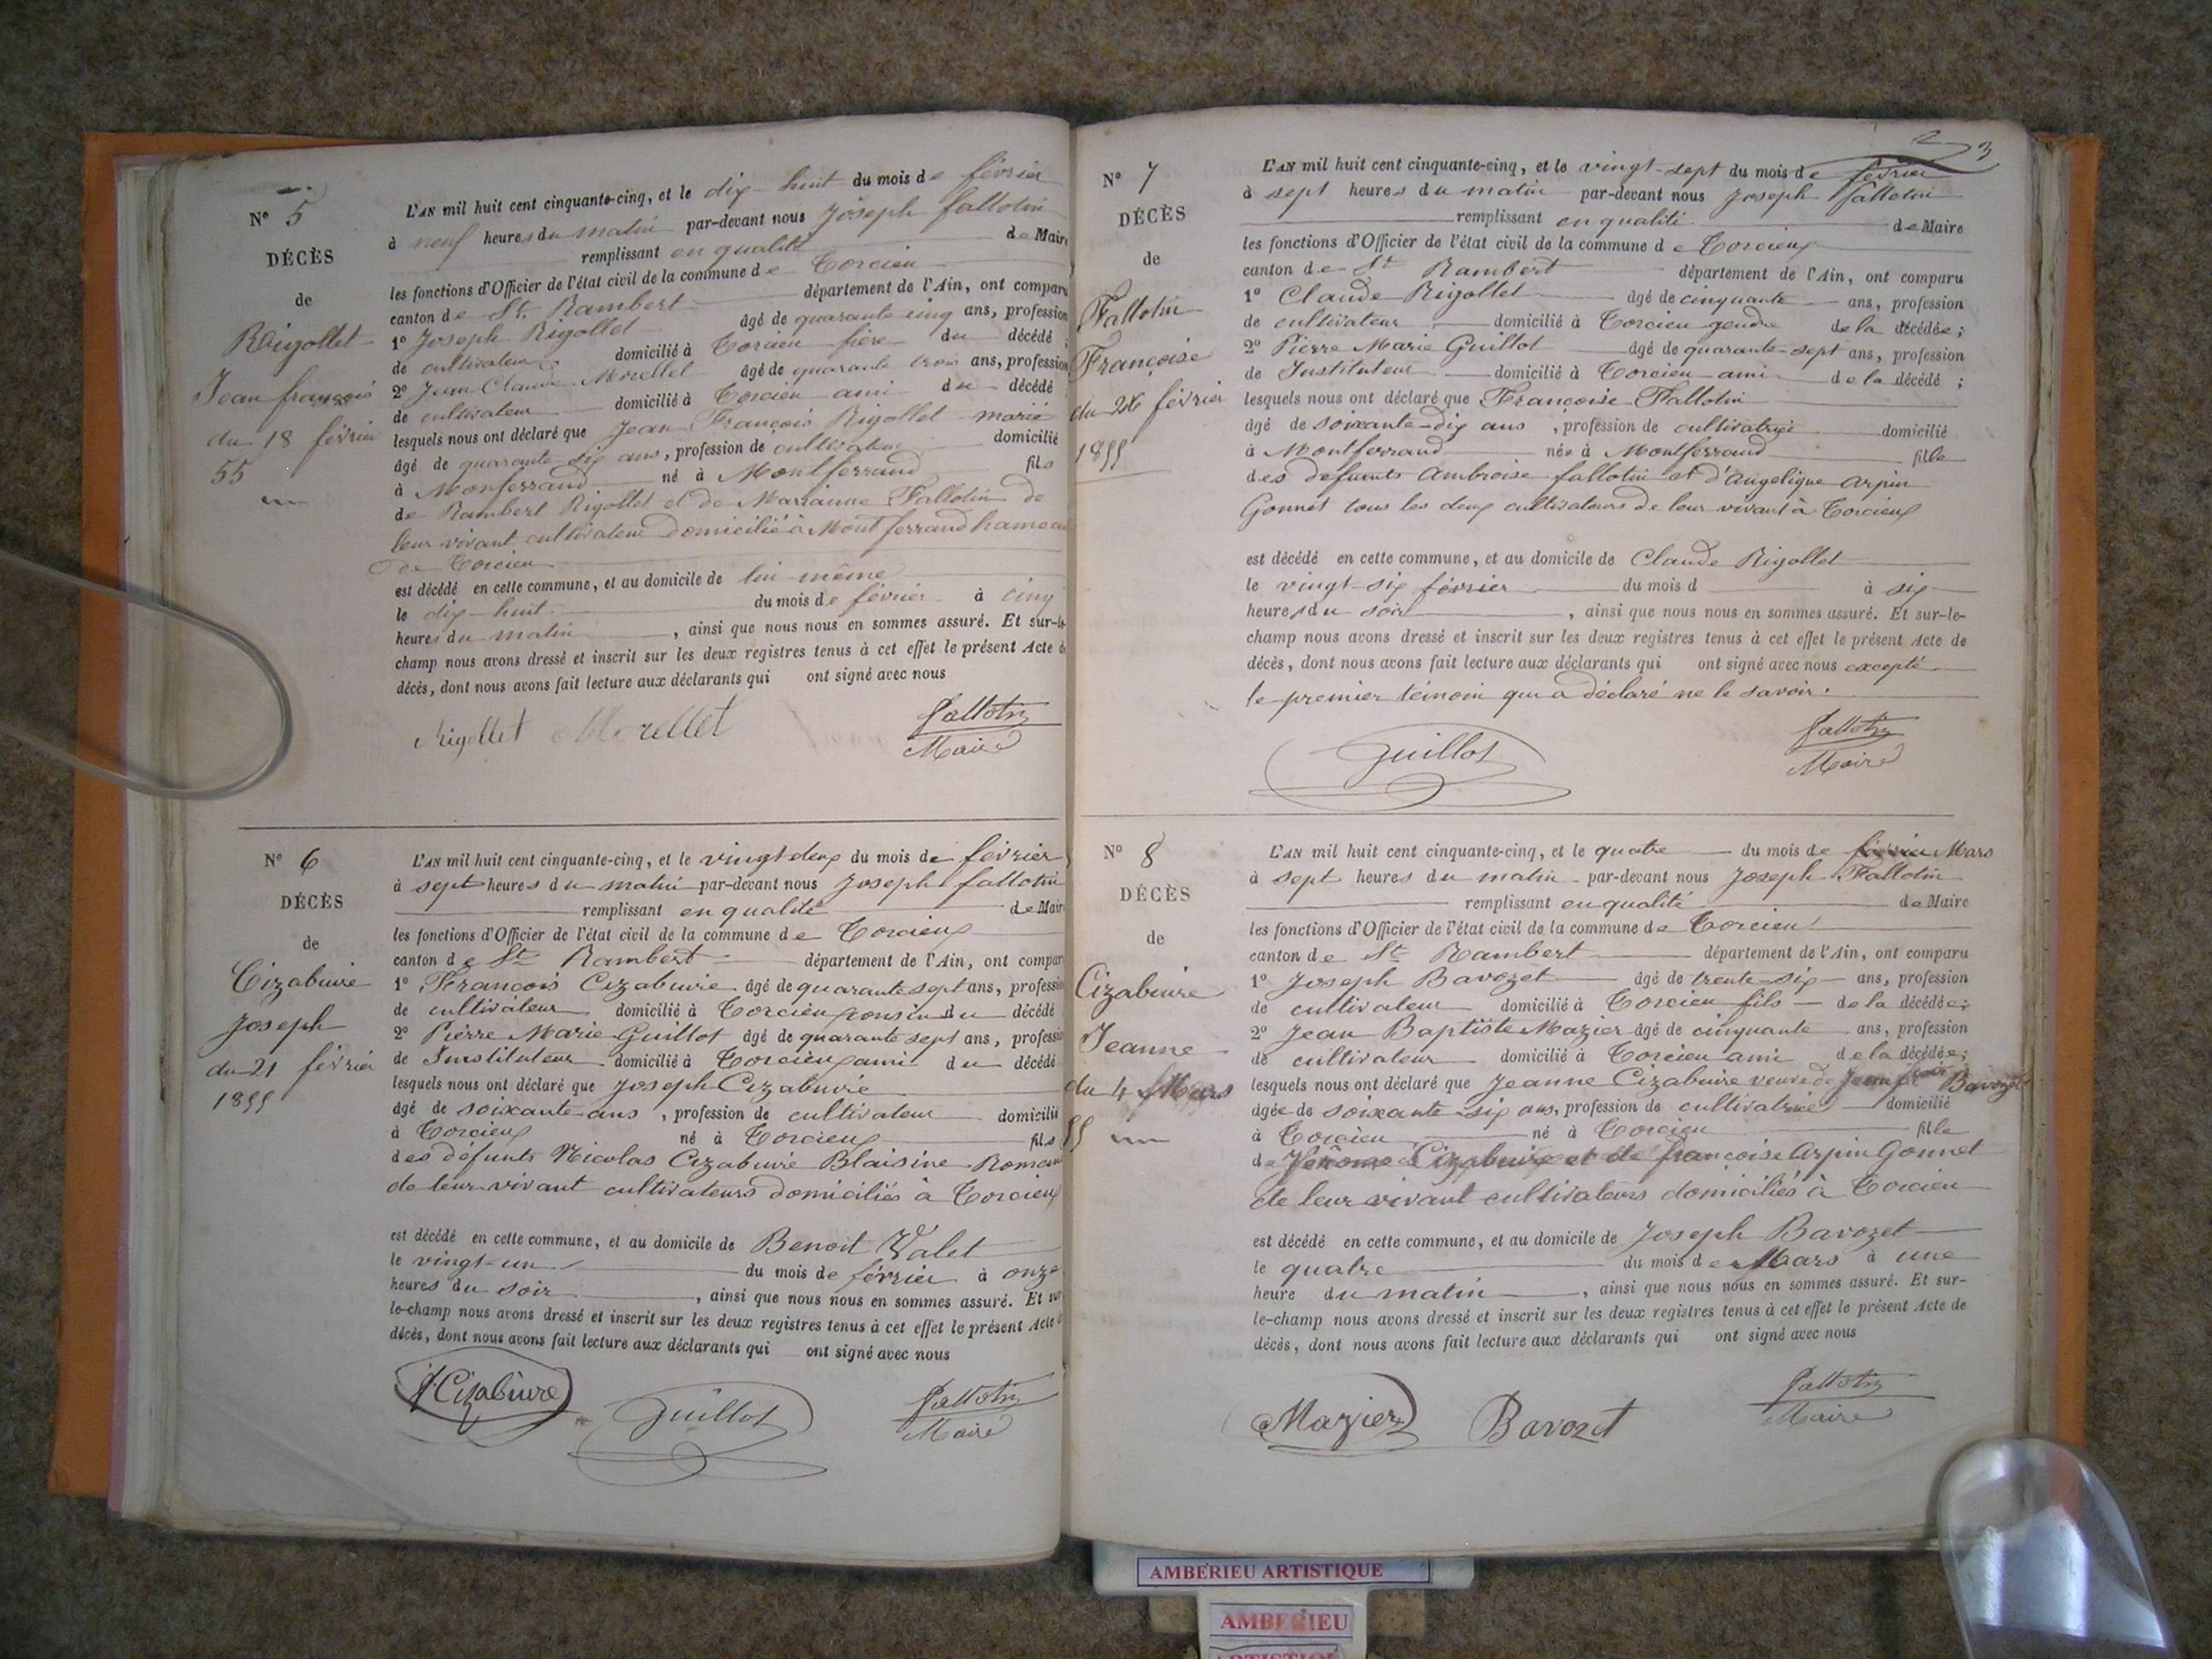 N° 5
DÉCÈS
de
Rigollet
Jean françois
du 18 février
55
L'AN mil huit cent cinquante-cinq, et le dix-huit du mois de février
à neuf heures du matin par-devant nous Joseph fallotin
remplissant en qualité de Maire
les fonctions d'Officier de l'état civil de la commune de Torcieu
canton de St. Rambert département de l'Ain, ont comparu
1° Joseph Rigollet âgé de quarante cinq ans, profession
de cultivateur domicilié à Torcieu frère du décédé ;
2° Jean Claude Morellet âgé de quarante trois ans, profession
de cultivateur domicilié à Torcieu ami du décédé
lesquels nous ont déclaré que Jean François Rigollet marié
âgé de quarante-six ans, profession de cultivateur domicilié
à Monferrand né à Montferrand fils
de Rambert Rigollet et de Marianne Fallotin de
leur vivant cultivateur domicilié à Montferrand hameau
de Torcieu
est décédé en cette commune, et au domicile de lui-même
le dix-huit du mois de février à cinq
heures du matin, ainsi que nous nous en sommes assuré. Et sur-le-
champ nous avons dressé et inscrit sur les deux registres tenus à cet effet le présent Acte de
décès, dont nous avons fait lecture aux déclarants qui ont signé avec nous
Rigollet Morellet fallotin
Maire
N° 6
DÉCÈS
de
Cizabuire
Joseph
du 21 février
1855
L'AN mil huit cent cinquante-cinq, et le vingt deux du mois de février
à sept heures du matin par-devant nous Joseph fallotin
remplissant en qualité de Maire
les fonctions d'Officier de l'état civil de la commune de Torcieux
canton de St Rambert département de l'Ain, ont comparu
1° François Cizabuire âgé de quarante sept ans, profession
de cultivateur domicilié à Torcieux cousin du décédé
2° Pierre Marie Guillot âgé de quarante sept ans, profession
de Instituteur domicilié à Torcieux ami du décédé
lesquels nous ont déclaré que Joseph Cizabuire
âgé de soixante ans, profession de cultivateur domicilié
à Torcieux né à Torcieux fils
des défunts Nicolas Cizabuire Blaisine Romand
de leur vivant cultivateurs domiciliés à Torcieux
est décédé en cette commune, et au domicile de Benoit Valet
le vingt-un du mois de février à onze
heures du soir, ainsi que nous nous en sommes assuré. Et sur
le-champ nous avons dressé et inscrit sur les deux registres tenus à cet effet le présent Acte de
décès, dont nous avons fait lecture aux déclarants qui ont signé avec nous
Cizabuire Guillot fallotin
Maire
3
N° 7
DÉCÈS
de
Fallotin
Françoise
du 26 février
1855
L'AN mil huit cent cinquante-cinq, et le vingt-sept du mois de février
à sept heures du matin par-devant nous Joseph fallotin
remplissant en qualité de Maire
les fonctions d'Officier de l'état civil de la commune de Torcieux
canton de St Rambert département de l'Ain, ont comparu
1° Claude Rigollet âgé de cinquante ans, profession
de cultivateur domicilié à Torcieu gendre de la décédée ;
2° Pierre Marie Guillot âgé de quarante-sept ans, profession
de Instituteur domicilié à Torcieu ami de la décédé ;
lesquels nous ont déclaré que Françoise Fallotin
âgé de soixante-dix ans, profession de cultivatrice domicilié
à Montferrand née à Montferrand fille
des defunts Ambroise fallotin et d'angelique arpin
Gonnet tous les deux cultivateurs de leur vivant à Torcieux
est décédé en cette commune, et au domicile de Claude Rigollet
le vingt-six février du mois d à six
heures du soir, ainsi que nous nous en sommes assuré. Et sur-le-
champ nous avons dressé et inscrit sur les deux registres tenus à cet effet le présent Acte de
décès, dont nous avons fait lecture aux déclarants qui ont signé avec nous excepté
le premier témoin qui a déclaré ne le savoir.
Guillot fallotin
Maire
N° 8
DÉCÈS
de
Cizabuire
Jeanne
du 4 Mars
55
L'AN mil huit cent cinquante-cinq, et le quatre du mois de février Mars
à sept heures du matin par-devant nous Joseph Fallotin
remplissant en qualité de Maire
les fonctions d'Officier de l'état civil de la commune de Torcieu
canton de St Rambert département de l'Ain, ont comparu
1° Joseph Bavozet âgé de trente-six ans, profession
de cultivateur domicilié à Torcieu fils de la décédée ;
2° Jean Baptiste Mazier âgé de cinquante ans, profession
de cultivateur domicilié à Torcieu ami de la décédée ;
lesquels nous ont déclaré que Jeanne Cizabuire veuve de Jean Bavozet
âgée de soixante-six ans, profession de cultivatrice domicilié
à Torcieu né à Torcieu fille
de Jérome Cizabuire et de françoise Arpin Gonnet
de leur vivant cultivateurs domiciliés à Torcieu
est décédé en cette commune, et au domicile de Joseph Bavozet
le quatre du mois de Mars à une
heure du matin, ainsi que nous nous en sommes assuré. Et sur-
le-champ nous avons dressé et inscrit sur les deux registres tenus à cet effet le présent Acte de
décès, dont nous avons fait lecture aux déclarants qui ont signé avec nous
Mazier Bavozet fallotin
Maire
AMBERIEU ARTISTIQUE
AMBERIEU
ARTISTIQUE